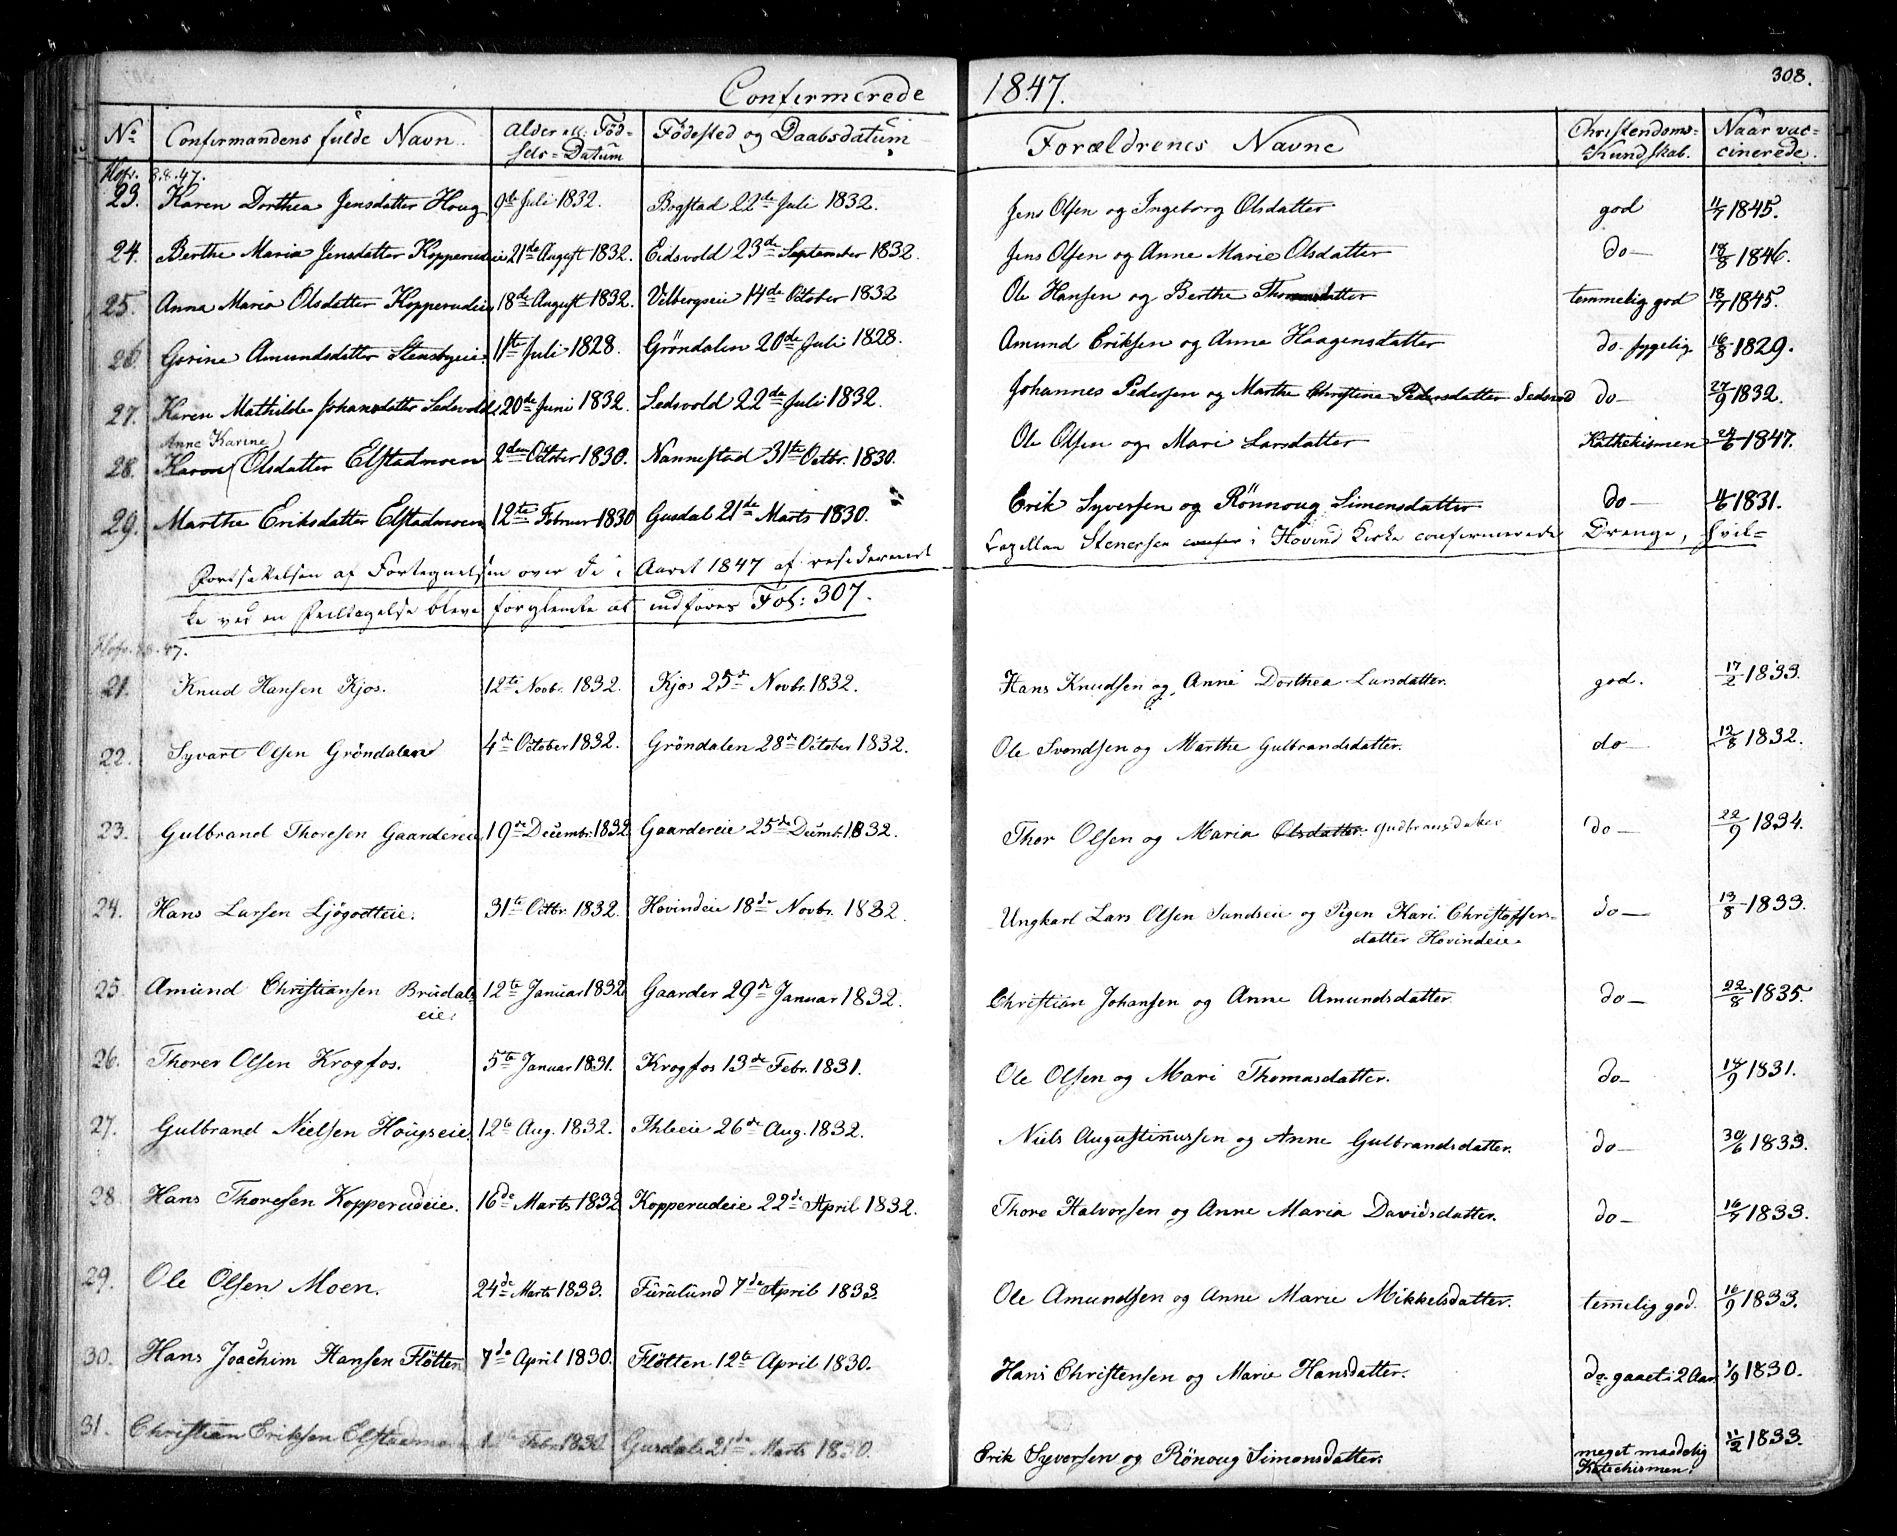 308.
Confirmerede 1847.
No Confirmandens fulde Navn. Alder ell: Fød= sels=Datum Fødested og Daabsdatum Forældrenes Navne Christendoms= Kundskab. Naar vac= cinerede.
23. Karen Dorthea Jensdatter Houg 9de Juli 1832. Bogstad 22de Juli 1832. Jens Olsen og Ingeborg Olsdatter god 11/7 1845.
24. Berthe Maria Jensdatter Kopperudeie 21de August 1832. Eidsvold 23de September 1832. Jens Olsen og Anne Marie Olsdatter do— 18/8 1846.
25. Anna Maria Olsdatter Kopperudeie 18de August 1832. Vilbergseie 14de October 1832 Ole Hansen og Berthe Thomasdatter temmelig god 18/7 1845.
26 Gorine Amundsdatter Stensbyeie. 11te Juli 1828. Gröndalen 20de Juli 1828. Amund Eriksen og Anne Haagensdatter do. sygelig 16/8 1829.
27. Karen Mathilde Johansdatter Sedsvold 20de Juni 1832. Sedsvold 22de Juli 1832. Johannes Pedersen og Marthe Christine Pedersdatter do— 27/9 1832.
Anne Karine
28. Karen Olsdatter Elstadmoen 2den October 1830. Nannestad 31te Octbr. 1830. Ole Olsen og Mari Larsdatter Kathekismen 24/6 1847.
29. Marthe Eriksdatter Elstadmoen 12te Februar 1830 Gusdal 21de Marts 1830. Erik Syversen og Rönnoug Simensdatter do— 4/6 1831.
Fortsættelsen af Fortegnelsen over de i Aaret 1847 af residerende Capellan Stenersen i Hovind Kirke confirmerede Drenge, hvil=
ke ved en Feiltagelse bleve forglemte at indføres Fol: 307.
21. Knud Hansen Kjos. 12te Novbr. 1832. Kjos 25de Novbr. 1832. Hans Knudsen og Anne Dorthea Larsdatter. god. 17/2 1833.
22. Syvart Olsen Gröndalen 4de October 1832. Gröndalen 28de October 1832. Ole Svendsen og Marthe Gulbrandsdatter. do— 12/8 1832.
23. Gulbrand Thoresen Gaardereie 19de Decembr. 1832 Gaardereie 25de Decmbr. 1832. Thor Olsen og Maria Olsdatter. Gudbransdatter do— 22/9 1834.
24. Hans Larsen Ljögodteie. 31te Octbr. 1832. Hovindeie 18de Novbr. 1832. Ungkarl Lars Olsen Sandseie og Pigen Kari Christoffers=
datter Hovindeie. do— 13/8 1833.
25. Amund Christiansen Brudal=
eie. 12te Januar 1832 Gaarder 29de Januar 1832. Christian Johansen og Anne Amundsdatter. do— 22/8 1835.
26. Thorer Olsen Krogfos. 5te Januar 1831. Krogfos 13de Febr. 1831. Ole Olsen og Mari Thomasdatter. do— 14/9 1831.
27. Gulbrand Nielsen Hougseie 12te Aug. 1832. Ihleeie 26de Aug. 1832. Niels Augustinussen og Anne Gulbrandsdatter. do— 30/6 1833.
28 Hans Thoresen Kopperudeie. 16de Marts 1832 Kopperudeie 22de April 1832. Thore Halvorsen og Anne Maria Davidsdatter. do— 16/7 1833.
29. Ole Olsen Moen. 24de Marts 1833. Furulund 7de April 1833. Ole Amundsen og Anne Marie Mikkelsdatter. temelig god. 16/9 1833.
30. Hans Joachim Hansen Flötten 7de April 1830. Flötten 12te April 1830. Hans Christensen og Marie Hansdatter. do. gaaet i 2 Aar 1/9 1830.
31. Christian Eriksen Elstadmoen 12te Febr. 1830 Gusdal 21de Marts 1830. Erik Syversen og Rönoug Simensdatter. meget maadelig
Katechismen. 11/2 1833.